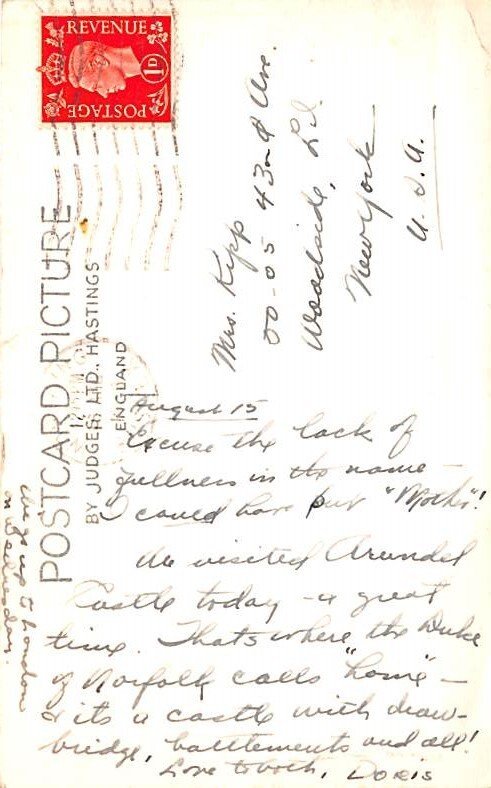 REVENUE
1D
POSTAGE
POSTCARD PICTURE
BY JUDGES LTD., HASTINGS
ENGLAND
Mrs. Kipp
50-05 43rd Ave.
Woodside, L.I.
New York
U.S.A.
August 15
Excuse the lack of
fullness in the name –
I could have put "Mother"!
We visited Arundel
Castle today – a great
time. Thats where the Duke
of Norfolk calls "home" –
& its a castle with draw-
bridge, battlements and all!
Love to both, DORIS
go up to London
on Wednesday.